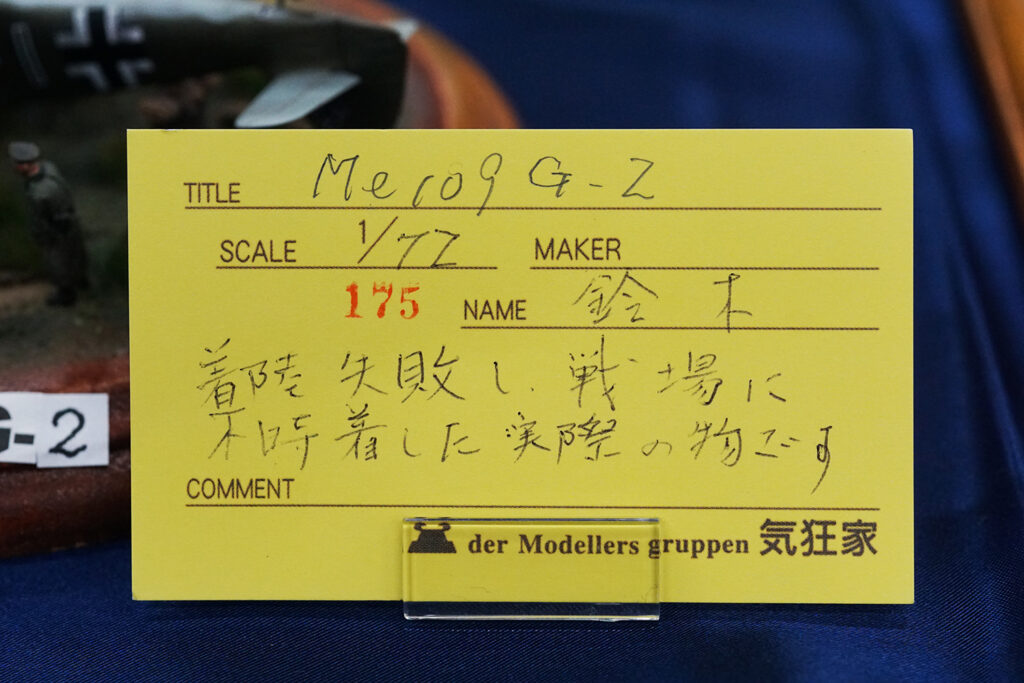 TITLE Me109 G-2
SCALE 1/72 MAKER
175 NAME 鈴木
着陸失敗し、戦場に
不時着した実際の物です
COMMENT
der Modellers gruppen 気狂家
G-2